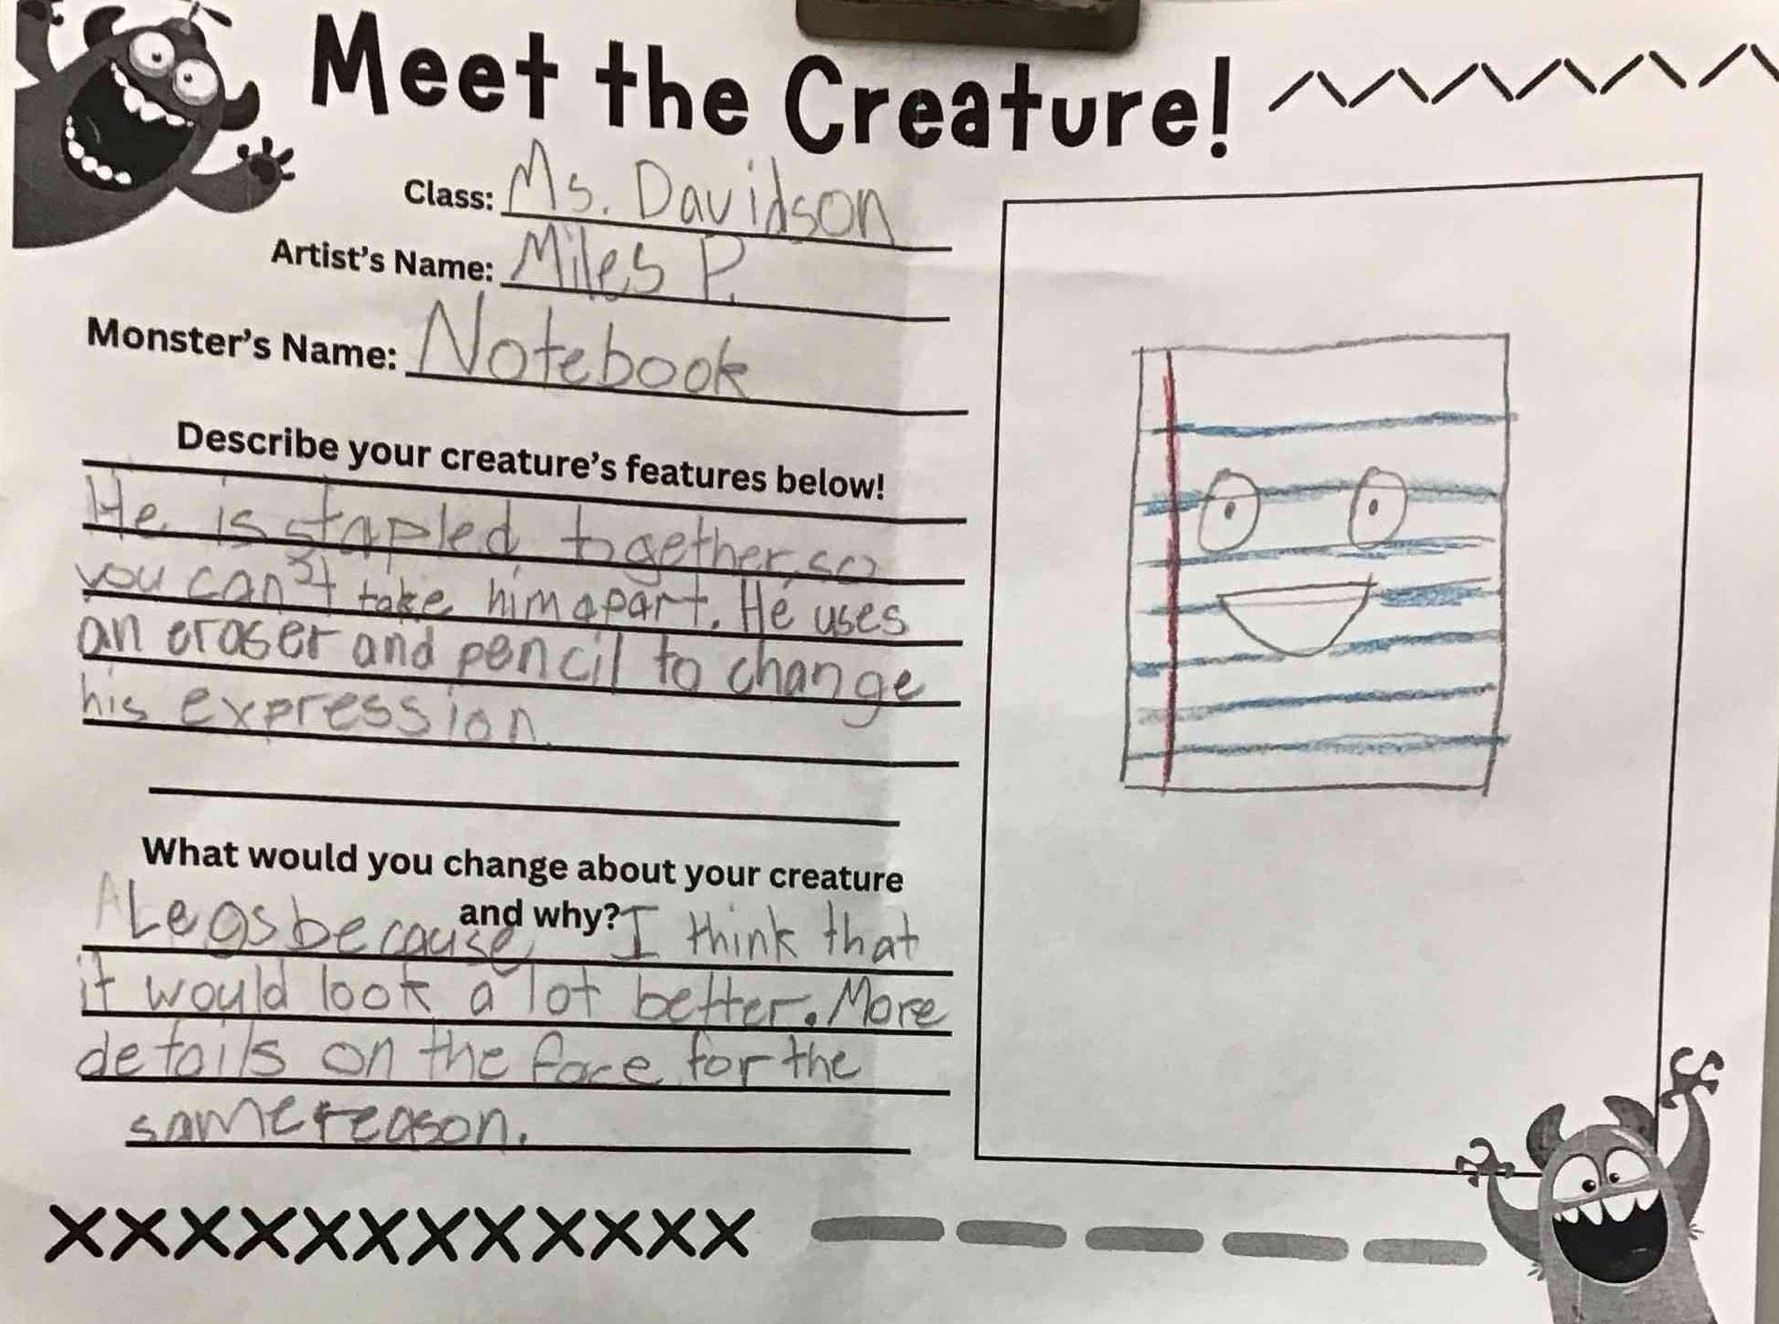 Meet the Creature!
Class: Ms. Davidson
Artist's Name: Miles P.
Monster's Name: Notebook
Describe your creature's features below!
He is stapled together, so
you can't take him apart. He uses
an eraser and pencil to change
his expression.
What would you change about your creature
and why?
Legs because I think that
it would look a lot better. More
details on the face for the
same reason.